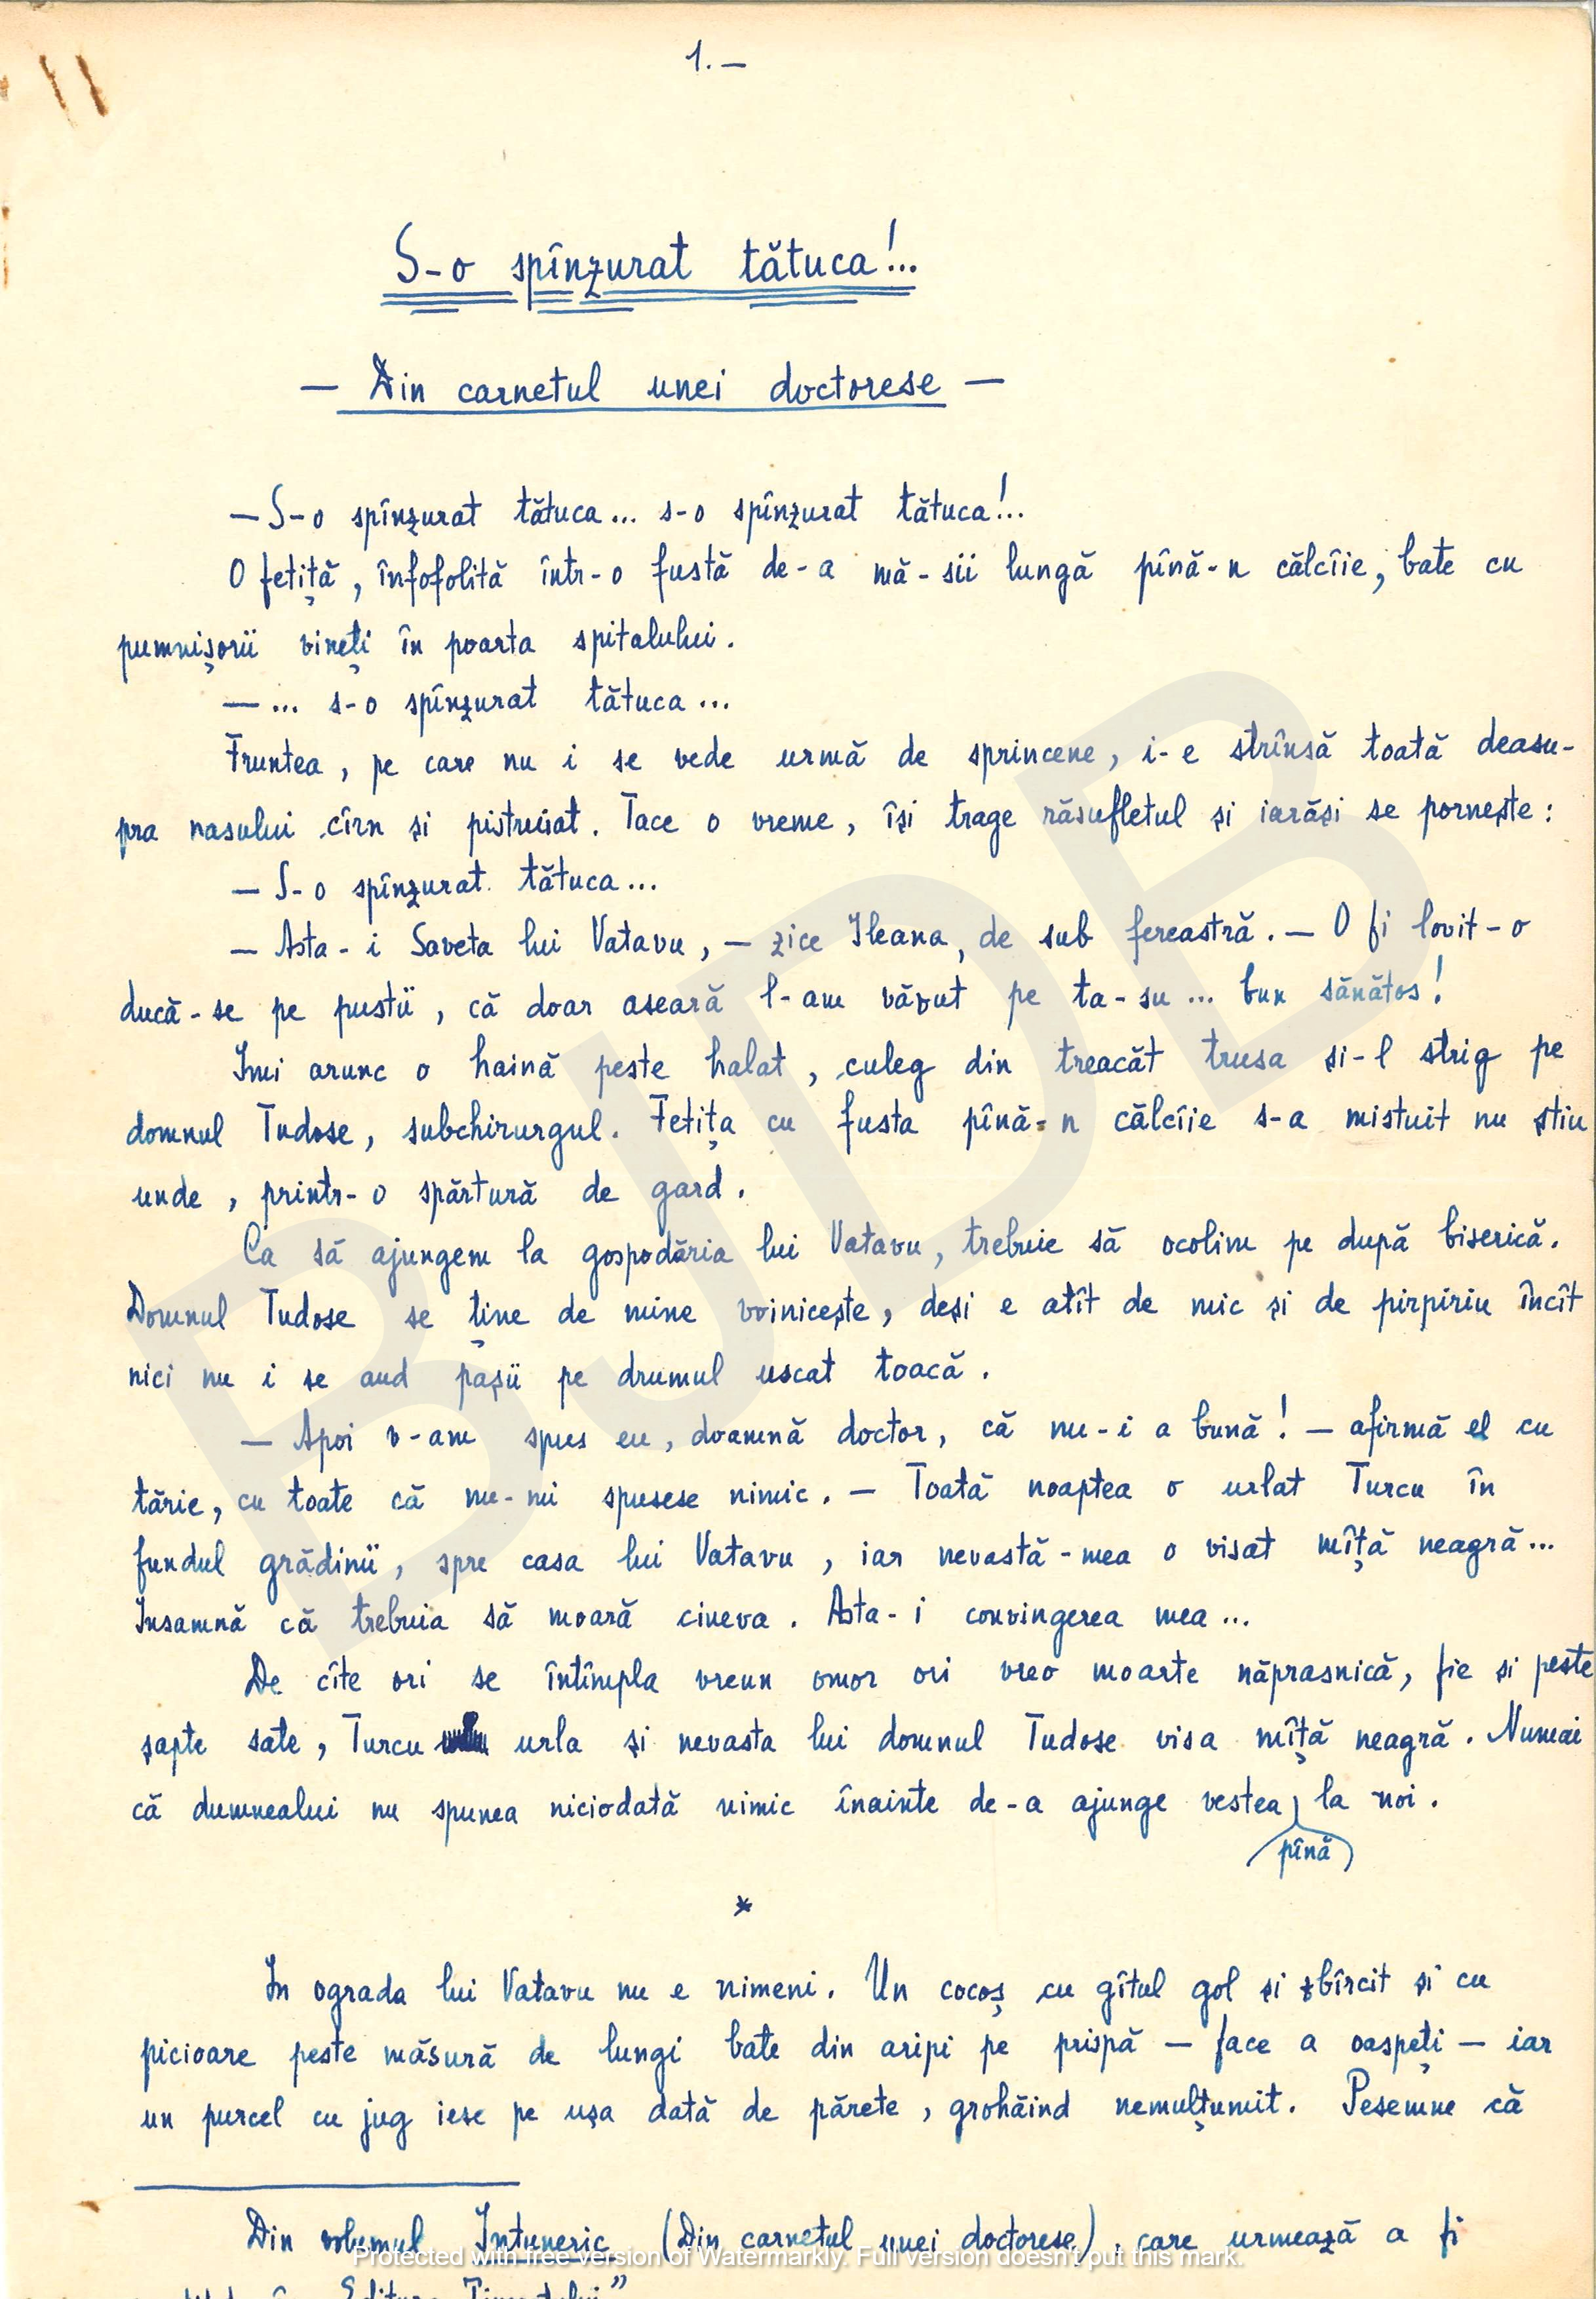 1.—
S-o spînzurat tătuca!...
— Din carnetul unei doctorese —
— S-o spînzurat tătuca... s-o spînzurat tătuca!...
O fetiță, înfofolită într-o fustă de-a mă-sii lungă pînă-n călcîie, bate cu
pumnișorii vineți în poarta spitalului.
—... s-o spînzurat tătuca...
Fruntea, pe care nu i se vede urmă de sprincene, i-e strînsă toată deasu-
pra nasului cîrn și pistruiat. Tace o vreme, își trage răsufletul și iarăși se pornește:
— S-o spînzurat tătuca...
— Asta-i Saveta lui Vatavu, — zice Ileana, de sub fereastră. — O fi lovit-o
ducă-se pe pustii, că doar aseară l-am văzut pe ta-su... bun sănătos!
Imi arunc o haină peste halat, culeg din treacăt trusa și-l strig pe
domnul Tudose, subchirurgul. Fetița cu fusta pînă-n călcîie s-a mistuit nu știu
unde, printr-o spărtură de gard.
Ca să ajungem la gospodăria lui Vatavu, trebuie să ocolim pe după biserică.
Domnul Tudose se ține de mine voinicește, deși e atît de mic și de pirpiriu încît
nici nu i se aud pașii pe drumul uscat toacă.
— Apoi v-am spus eu, doamnă doctor, că nu-i a bună! — afirmă el cu
tărie, cu toate că nu-mi spusese nimic. — Toată noaptea o urlat Turcu în
fundul grădinii, spre casa lui Vatavu, iar nevastă-mea o visat mîță neagră...
Insamnă că trebuia să moară cineva. Asta-i convingerea mea...
De cîte ori se întîmpla vreun omor ori vreo moarte năprasnică, fie și peste
șapte sate, Turcu urla și nevasta lui domnul Tudose visa mîță neagră. Numai
că dumnealui nu spunea niciodată nimic înainte de-a ajunge vestea la noi.
pînă
*
In ograda lui Vatavu nu e nimeni. Un cocoș cu gîtul gol și zbîrcit și cu
picioare peste măsură de lungi bate din aripi pe prispă — face a oaspeți — iar
un purcel cu jug iese pe ușa dată de părete, grohăind nemulțumit. Pesemne că
Din volumul Intuneric (Din carnetul unei doctorese), care urmează a fi
Protected with free version of Watermarkly. Full version doesn't put this mark.
BJDB